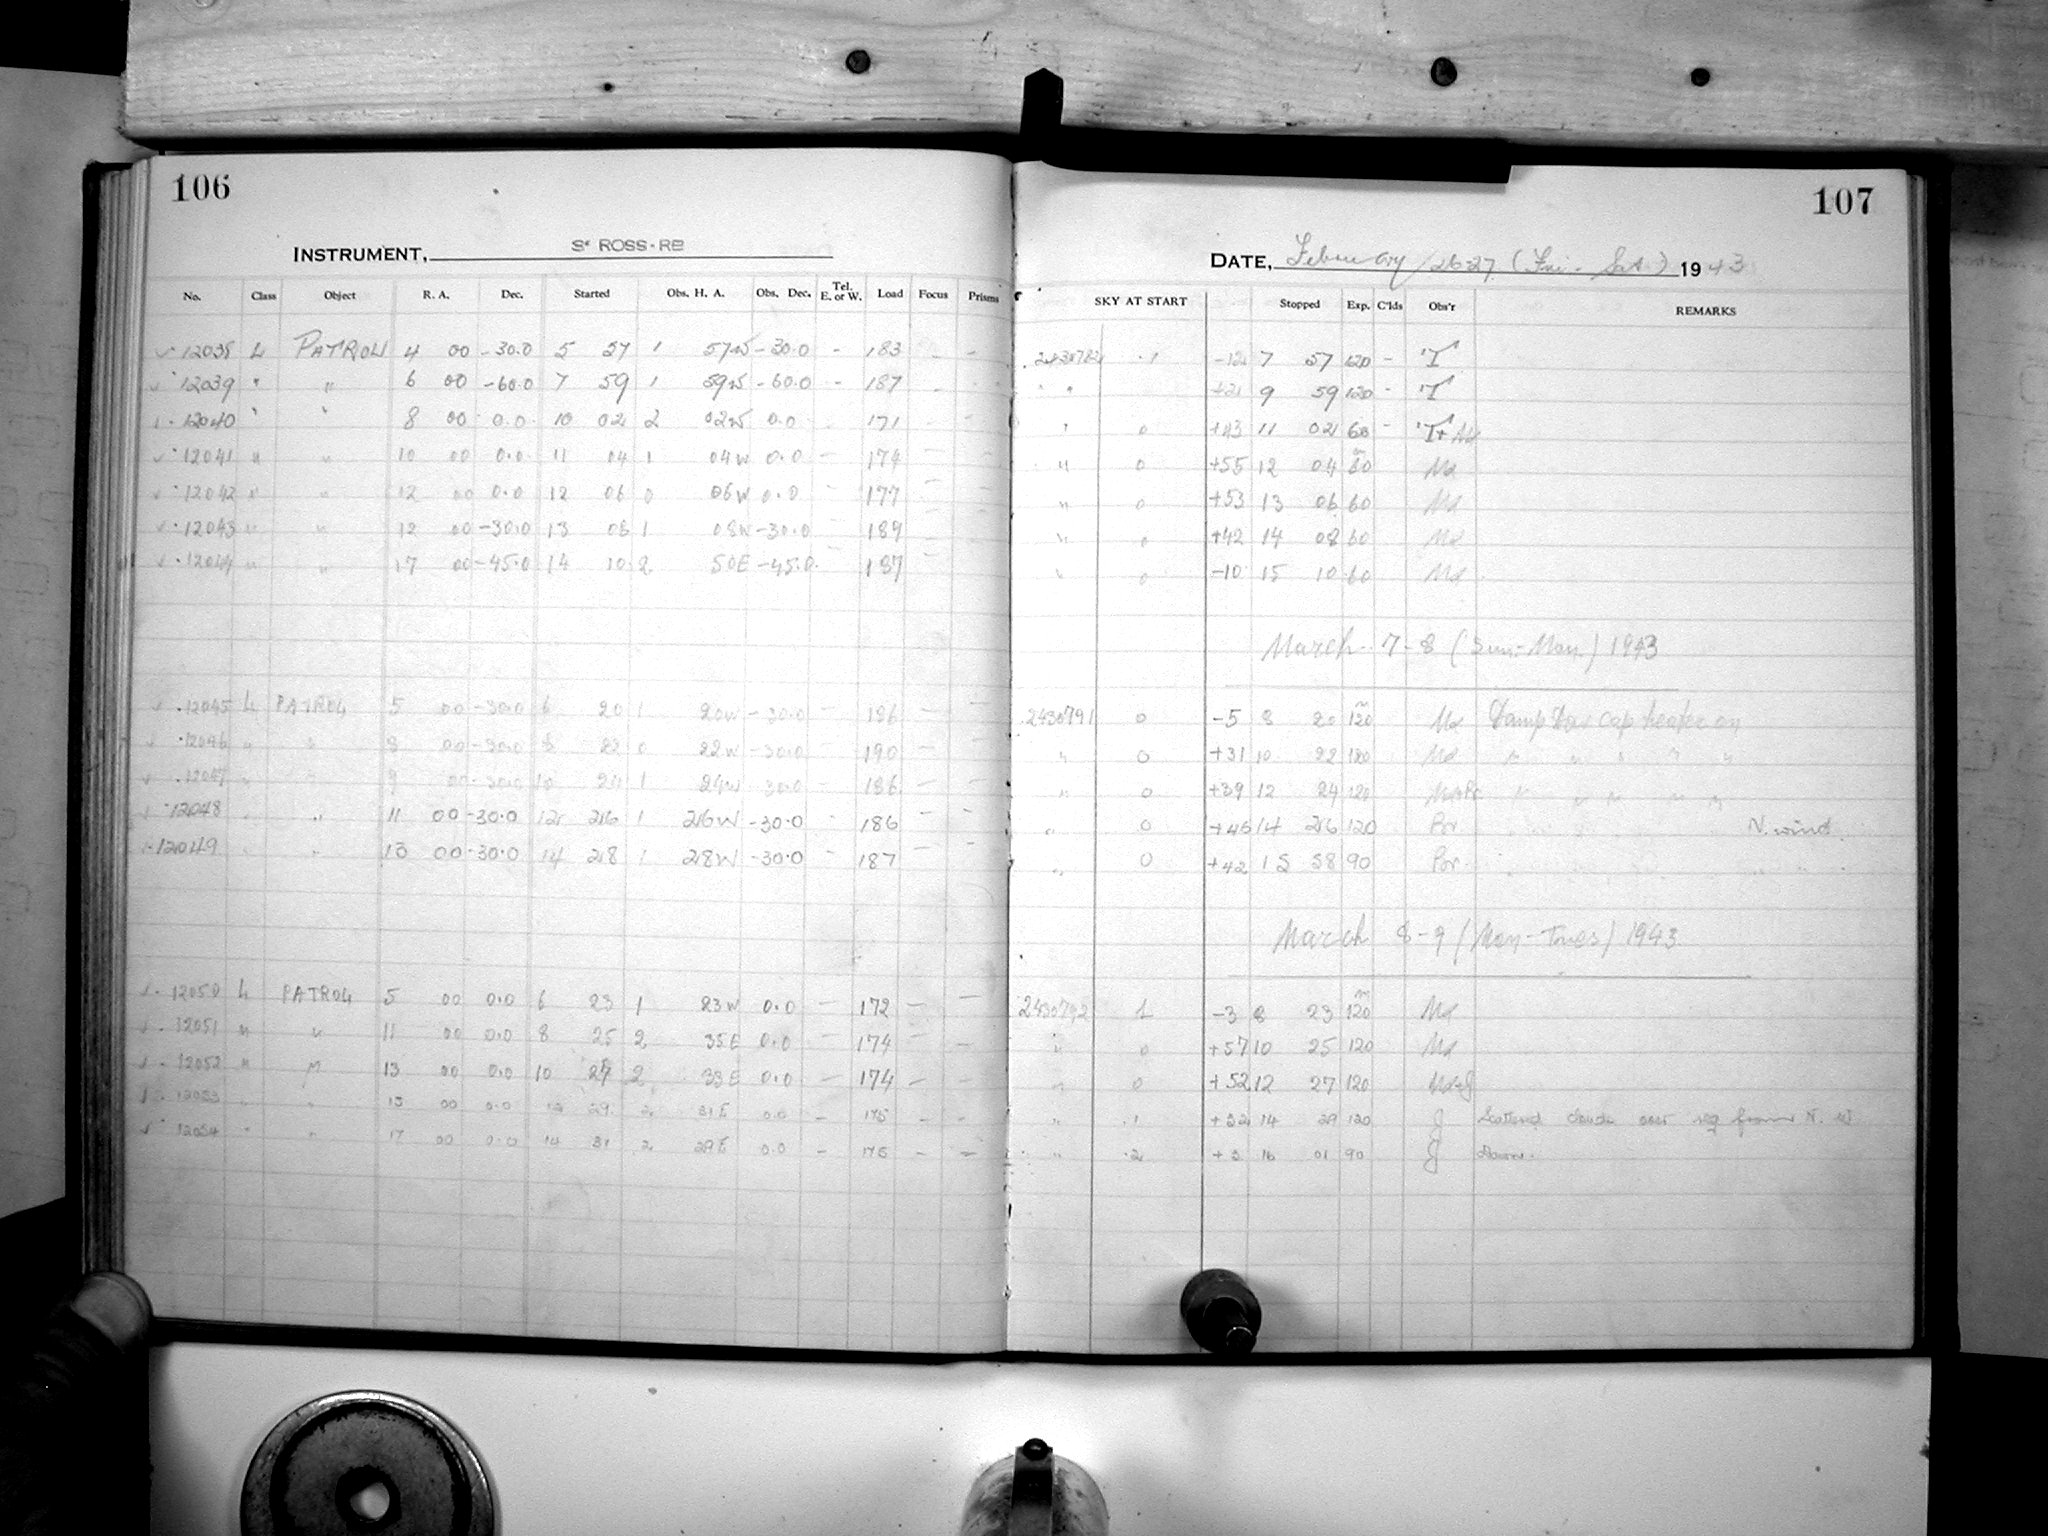 106
INSTRUMENT, 3" ROSS-RB
No. Class Object R. A. Dec. Started Obs. H. A. Obs. Dec. Tel. E. or W. Load Focus Prisms
12038 L PATROL 4 00 -30.0 5 57 1 57W -30.0 - 183 - -
12039 " " 6 00 -60.0 7 59 1 59W -60.0 - 187
12040 " " 8 00 0.0 10 02 2 02W 0.0 171
12041 " " 10 00 0.0 11 04 1 04W 0.0 - 174 - -
12042 " " 12 00 0.0 12 06 0 06W 0.0 - 177 - -
12043 " " 12 00 -30.0 13 08 1 08W -30.0 - 189 - -
12044 " " 17 00 -45.0 14 10 2 50E -45.0 187 - -
12045 L PATROL 5 00 -30.0 6 20 1 20W -30.0 - 186 - -
12046 " " 8 00 -30.0 8 22 0 22W -30.0 - 190 - -
12047 " " 9 00 -30.0 10 24 1 24W -30.0 - 186 - -
12048 " 11 00 -30.0 12 26 1 26W -30.0 - 186 - -
12049 " 13 00 -30.0 14 28 1 28W -30.0 187 - -
12050 L PATROL 5 00 0.0 6 23 1 23W 0.0 - 172 - -
12051 " " 11 00 0.0 8 25 2 35E 0.0 - 174 - -
12052 " " 13 00 0.0 10 27 2 33E 0.0 - 174 - -
12053 " " 15 00 0.0 12 29 2 31E 0.0 - 175 - -
12054 " " 17 00 0.0 14 31 2 29E 0.0 - 175 - -
107
DATE, February 26-27 (Fri.-Sat.) 1943
SKY AT START Stopped Exp. C'lds Obs'r REMARKS
2430782 .1 -12 7 57 120 - T
" " +21 9 59 120 - T
" 0 +43 11 02 60 - T+Md
" 0 +55 12 04 60 Md
" 0 +53 13 06 60 Md
" 0 +42 14 08 60 Md
" 0 -10 15 10 60 Md
March 7-8 (Sun-Mon) 1943
2430791 0 -5 8 20 120 Md Damp Dew cap heater on
" 0 +31 10 22 120 Md " " " " "
" 0 +39 12 24 120 " " " " "
" 0 +45 14 26 120 Por N. wind
" 0 +42 15 58 90 Por
March 8-9 (Mon-Tues) 1943
2430792 1 -3 8 23 120 Md
" 0 +57 10 25 120 Md
" 0 +52 12 27 120 Md+J
" .1 +32 14 29 120 J Scattered clouds over reg from N. W
" .2 +3 16 01 90 J Dawn.